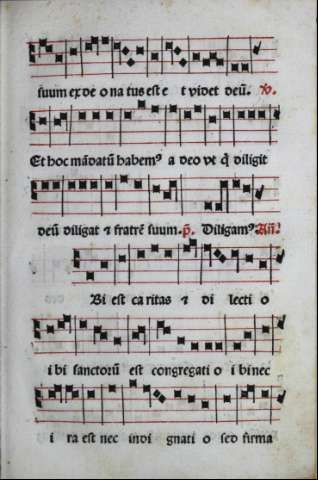 suum ex deo natus est et videt deū. ℣.
Et hoc mādatū habemꝰ a deo vt q̇ diligit
deū diligat ⁊ fratrē suum. p̄. Diligamꝰ. Añ.
Vbi est caritas ⁊ dilectio
ibi sanctorū est congregatio ibi nec
ira est nec indignatio sed firma